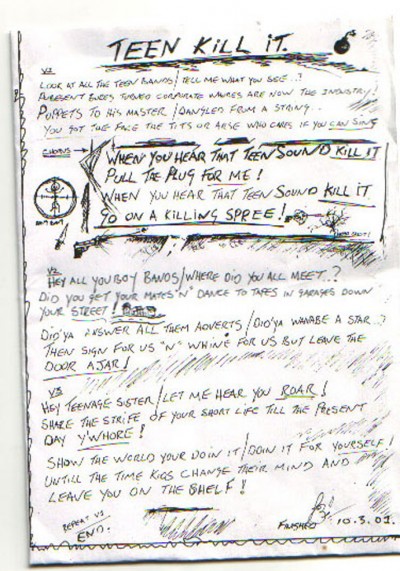 TEEN KILL iT.
V1
LOOK AT ALL THE TEEN BANDS / TELL ME WHAT YOU SEE..?
TURNED CORPORATE WHORES ARE NOW THE INDUSTRY!
PUPPETS TO HIS MASTER / DANGLED FROM A STRING..
YOU GOT THE FACE THE TITS OR ARSE WHO CARES IF YOU CAN SING
CHORUS
WHEN YOU HEAR THAT TEEN SOUND KILL iT
PULL THE PLUG FOR ME!
WHEN YOU HEAR THAT TEEN SOUND KILL IT
GO ON A KILLING SPREE!
V2
HEY ALL YOU BOY BANDS / WHERE DID YOU ALL MEET..?
DID YOU GET YOUR MATES "N" DANCE TO TAPES IN GARAGES DOWN
YOUR STREET!
DID'YA ANSWER ALL THEM ADVERTS / DID'YA WANABE A STAR..?
THEN SIGN FOR US "N" WHINE FOR US BUT LEAVE THE
DOOR AJAR!
V3
HEY TEENAGE SISTER / LET ME HEAR YOU ROAR!
SHARE THE STRIFE OF YOUR SHORT LIFE TILL THE PRESENT
DAY Y'WHORE!
SHOW THE WORLD YOUR DOIN IT / DOIN IT FOR YOURSELF!
UNTILL THE TIME KIDS CHANGE THEIR MIND AND
LEAVE YOU ON THE SHELF!
REPEAT V1
END.
FINISHED 10.3.01.